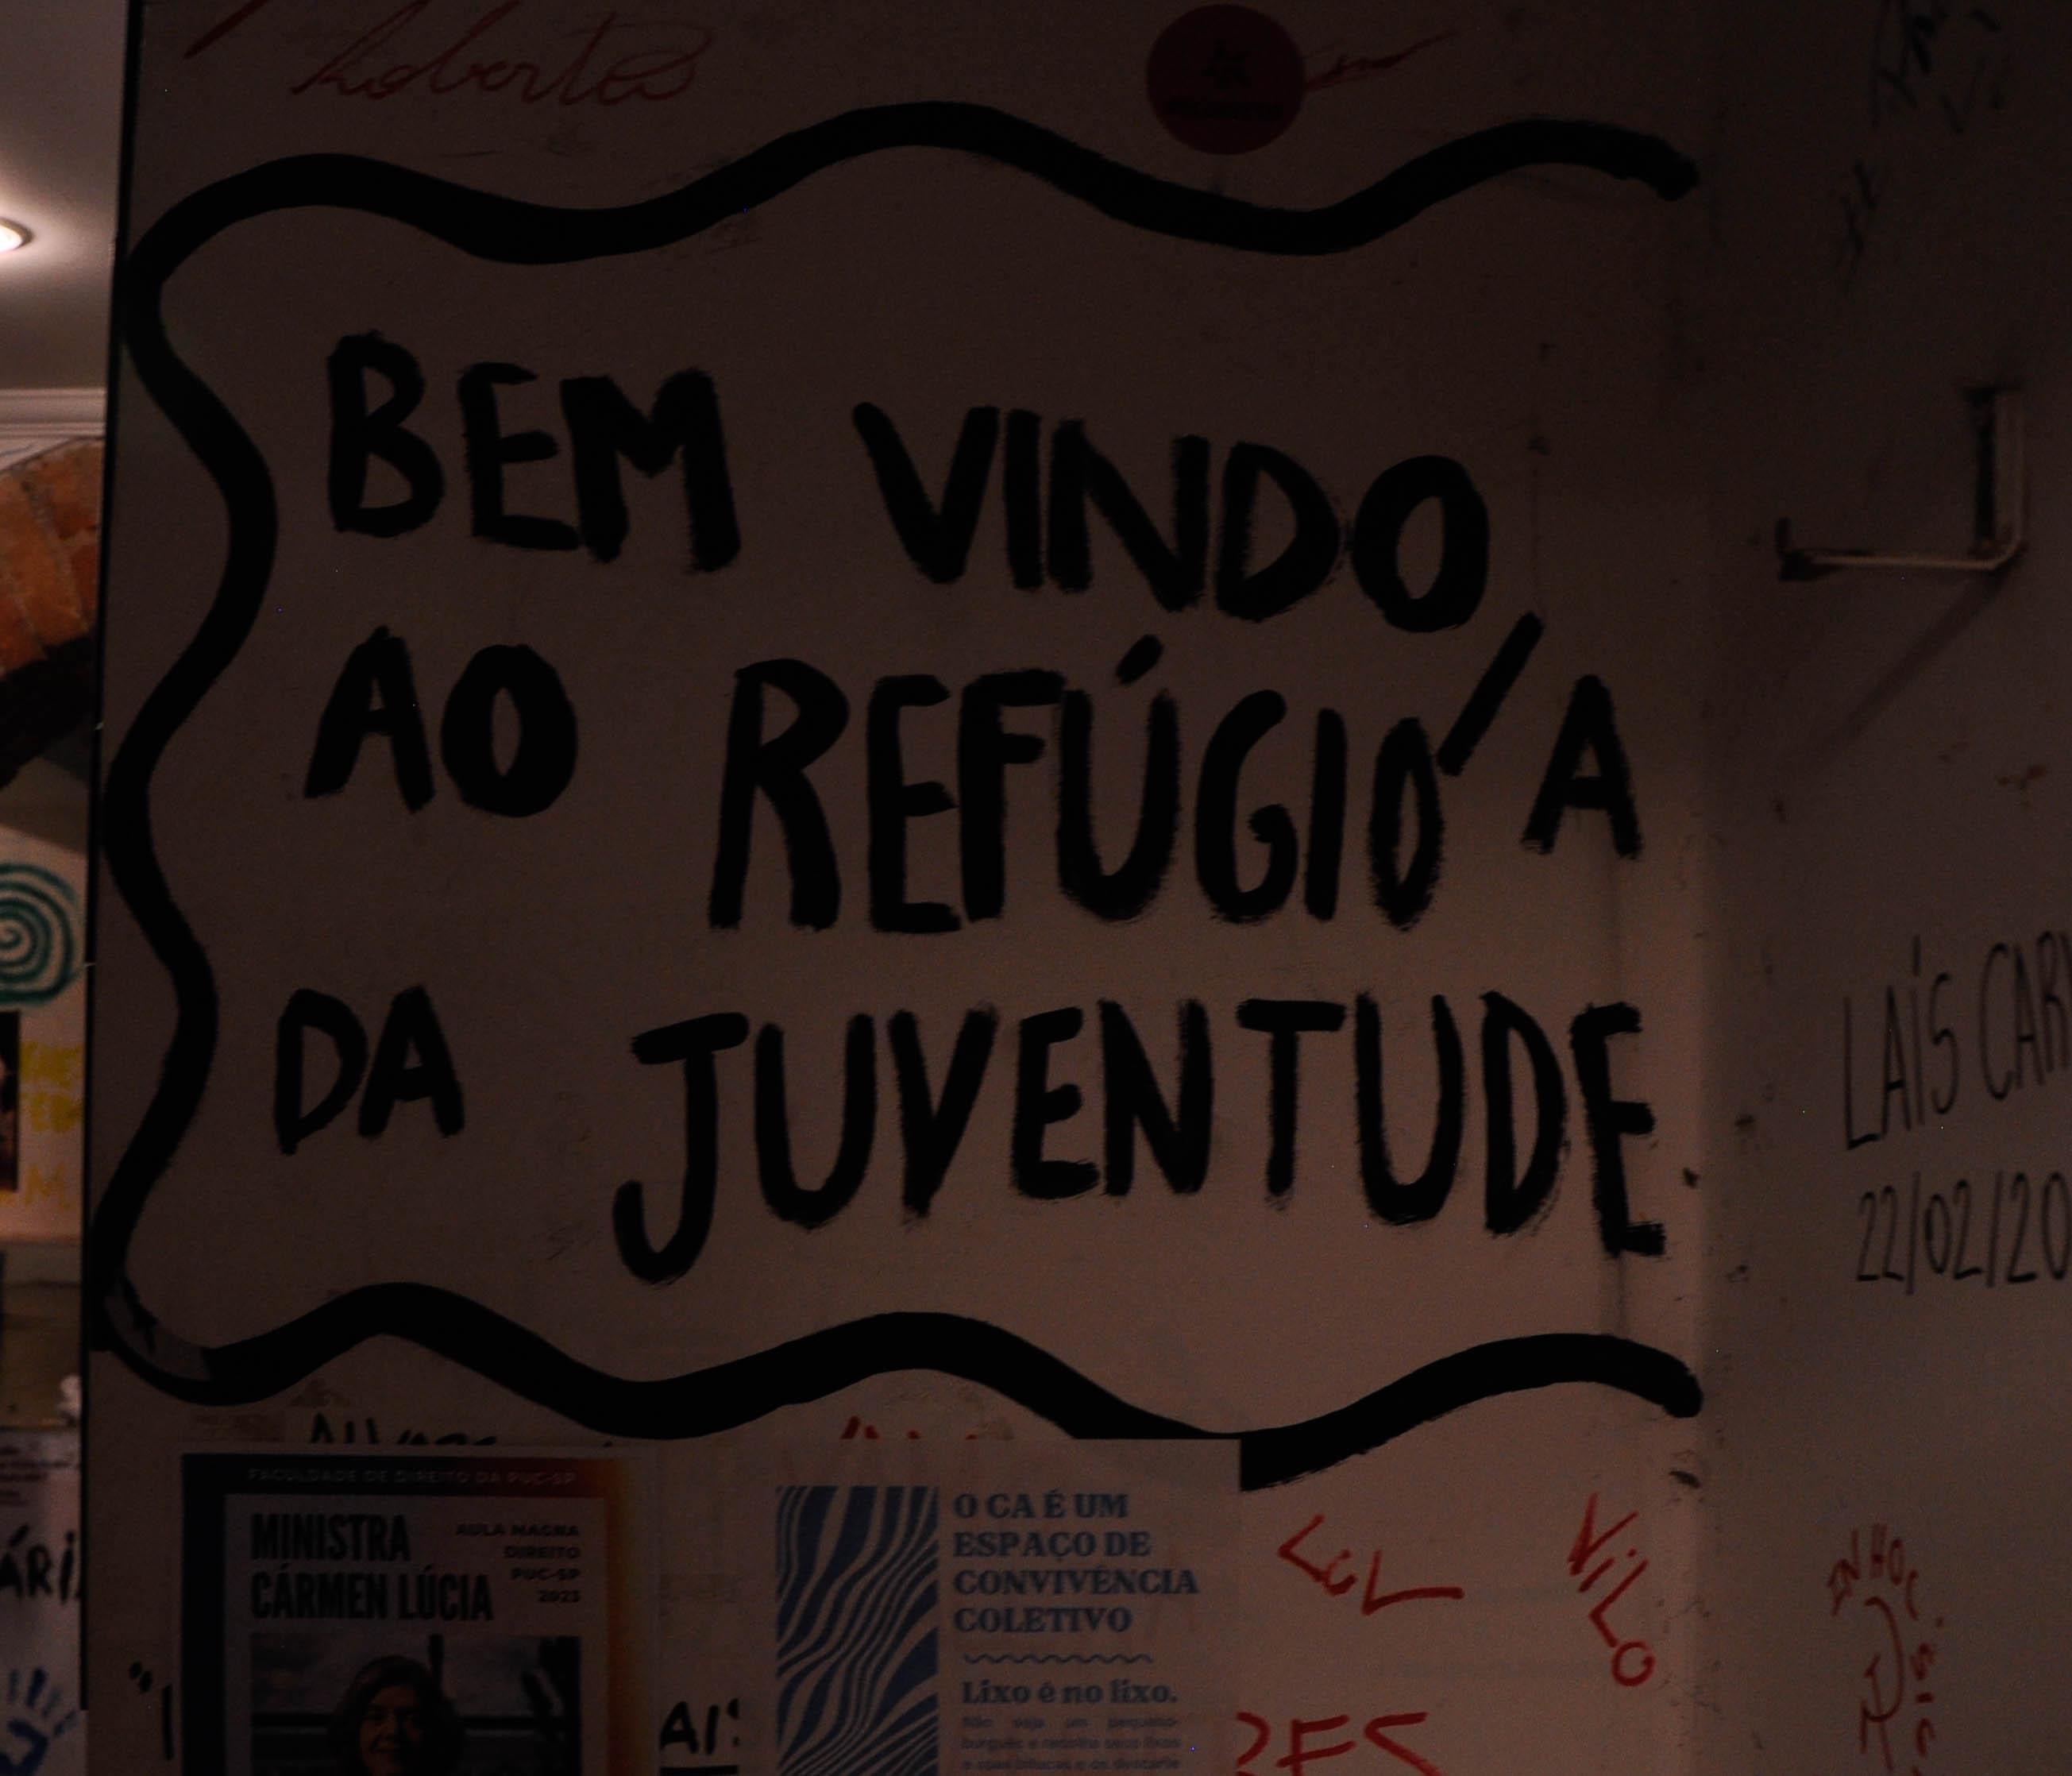 Roberto
BEM VINDO/A
AO REFÚGIO
DA JUVENTUDE
LAÍS CAR
22/02/20
FACULDADE DE DIREITO DA PUC-SP
MINISTRA
CÁRMEN LÚCIA
AULA MAGNA
DIREITO
PUC-SP
2023
O CA É UM
ESPAÇO DE
CONVIVÊNCIA
COLETIVO
Lixo é no lixo.
Não seja um pequeno-
burguês e recolha seus lixos
e suas bitucas e os descarte
LUL
VILO
IN HOC
ÁRI
AIS
RES